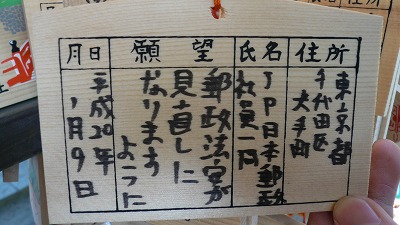 住所
東京都
千代田区
大手町
氏名
JP日本郵政
社員一同
願望
郵政法案が
見直しに
なります
ように
月日
平成20年
1月9日